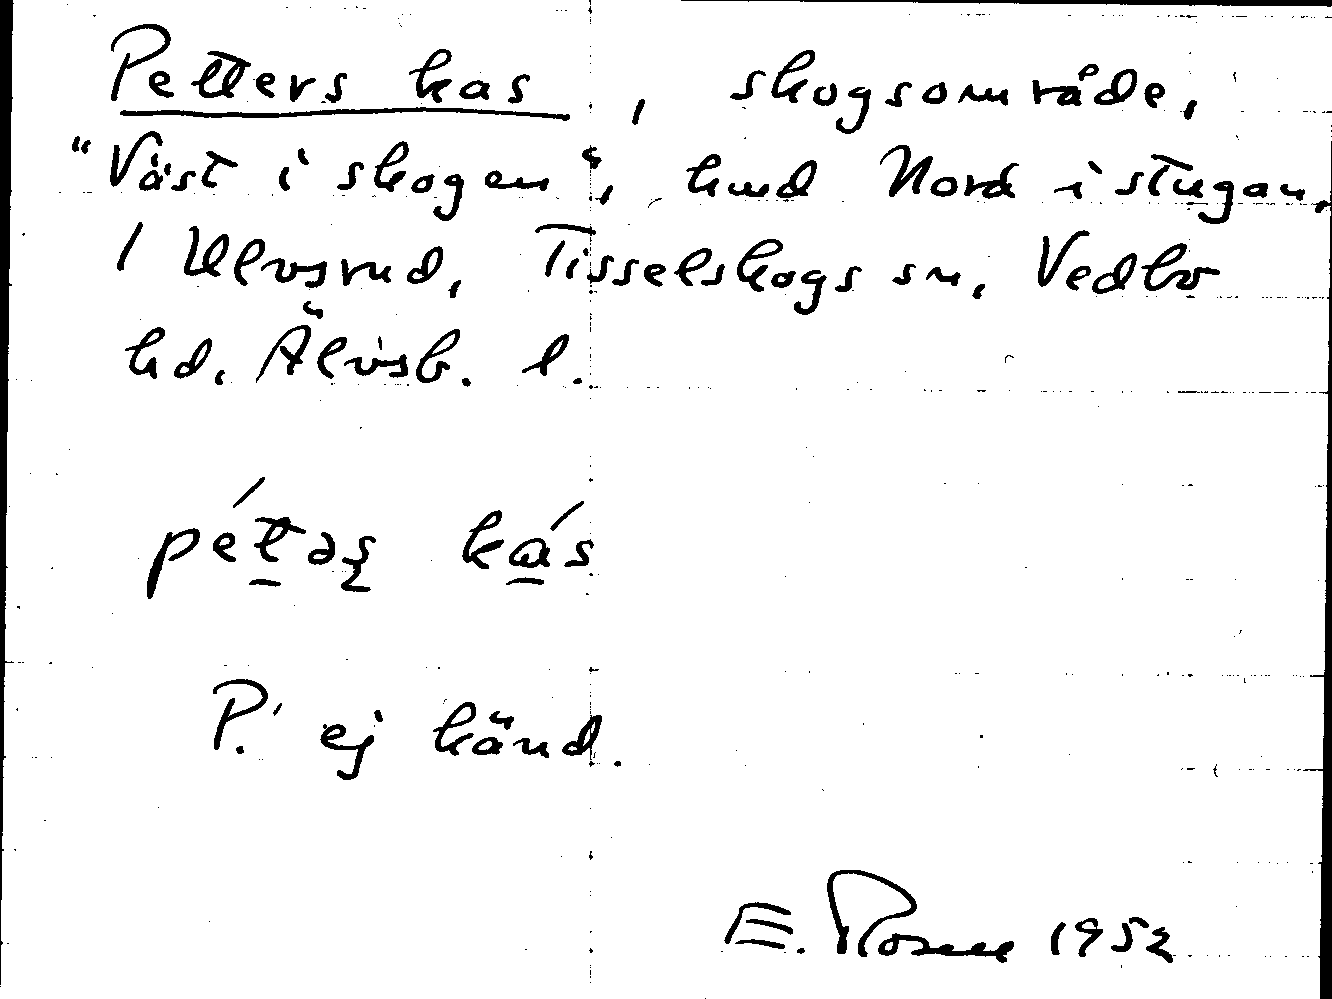 Petters kas, skogsområde,
"Väst i skogen", hmd Nord i stugan,
I Ulvsrud, Tisselskogs sn, Vedbo
hd. Älvsb. l.
pétəs kás
P. ej känd.
E. Rosell 1952